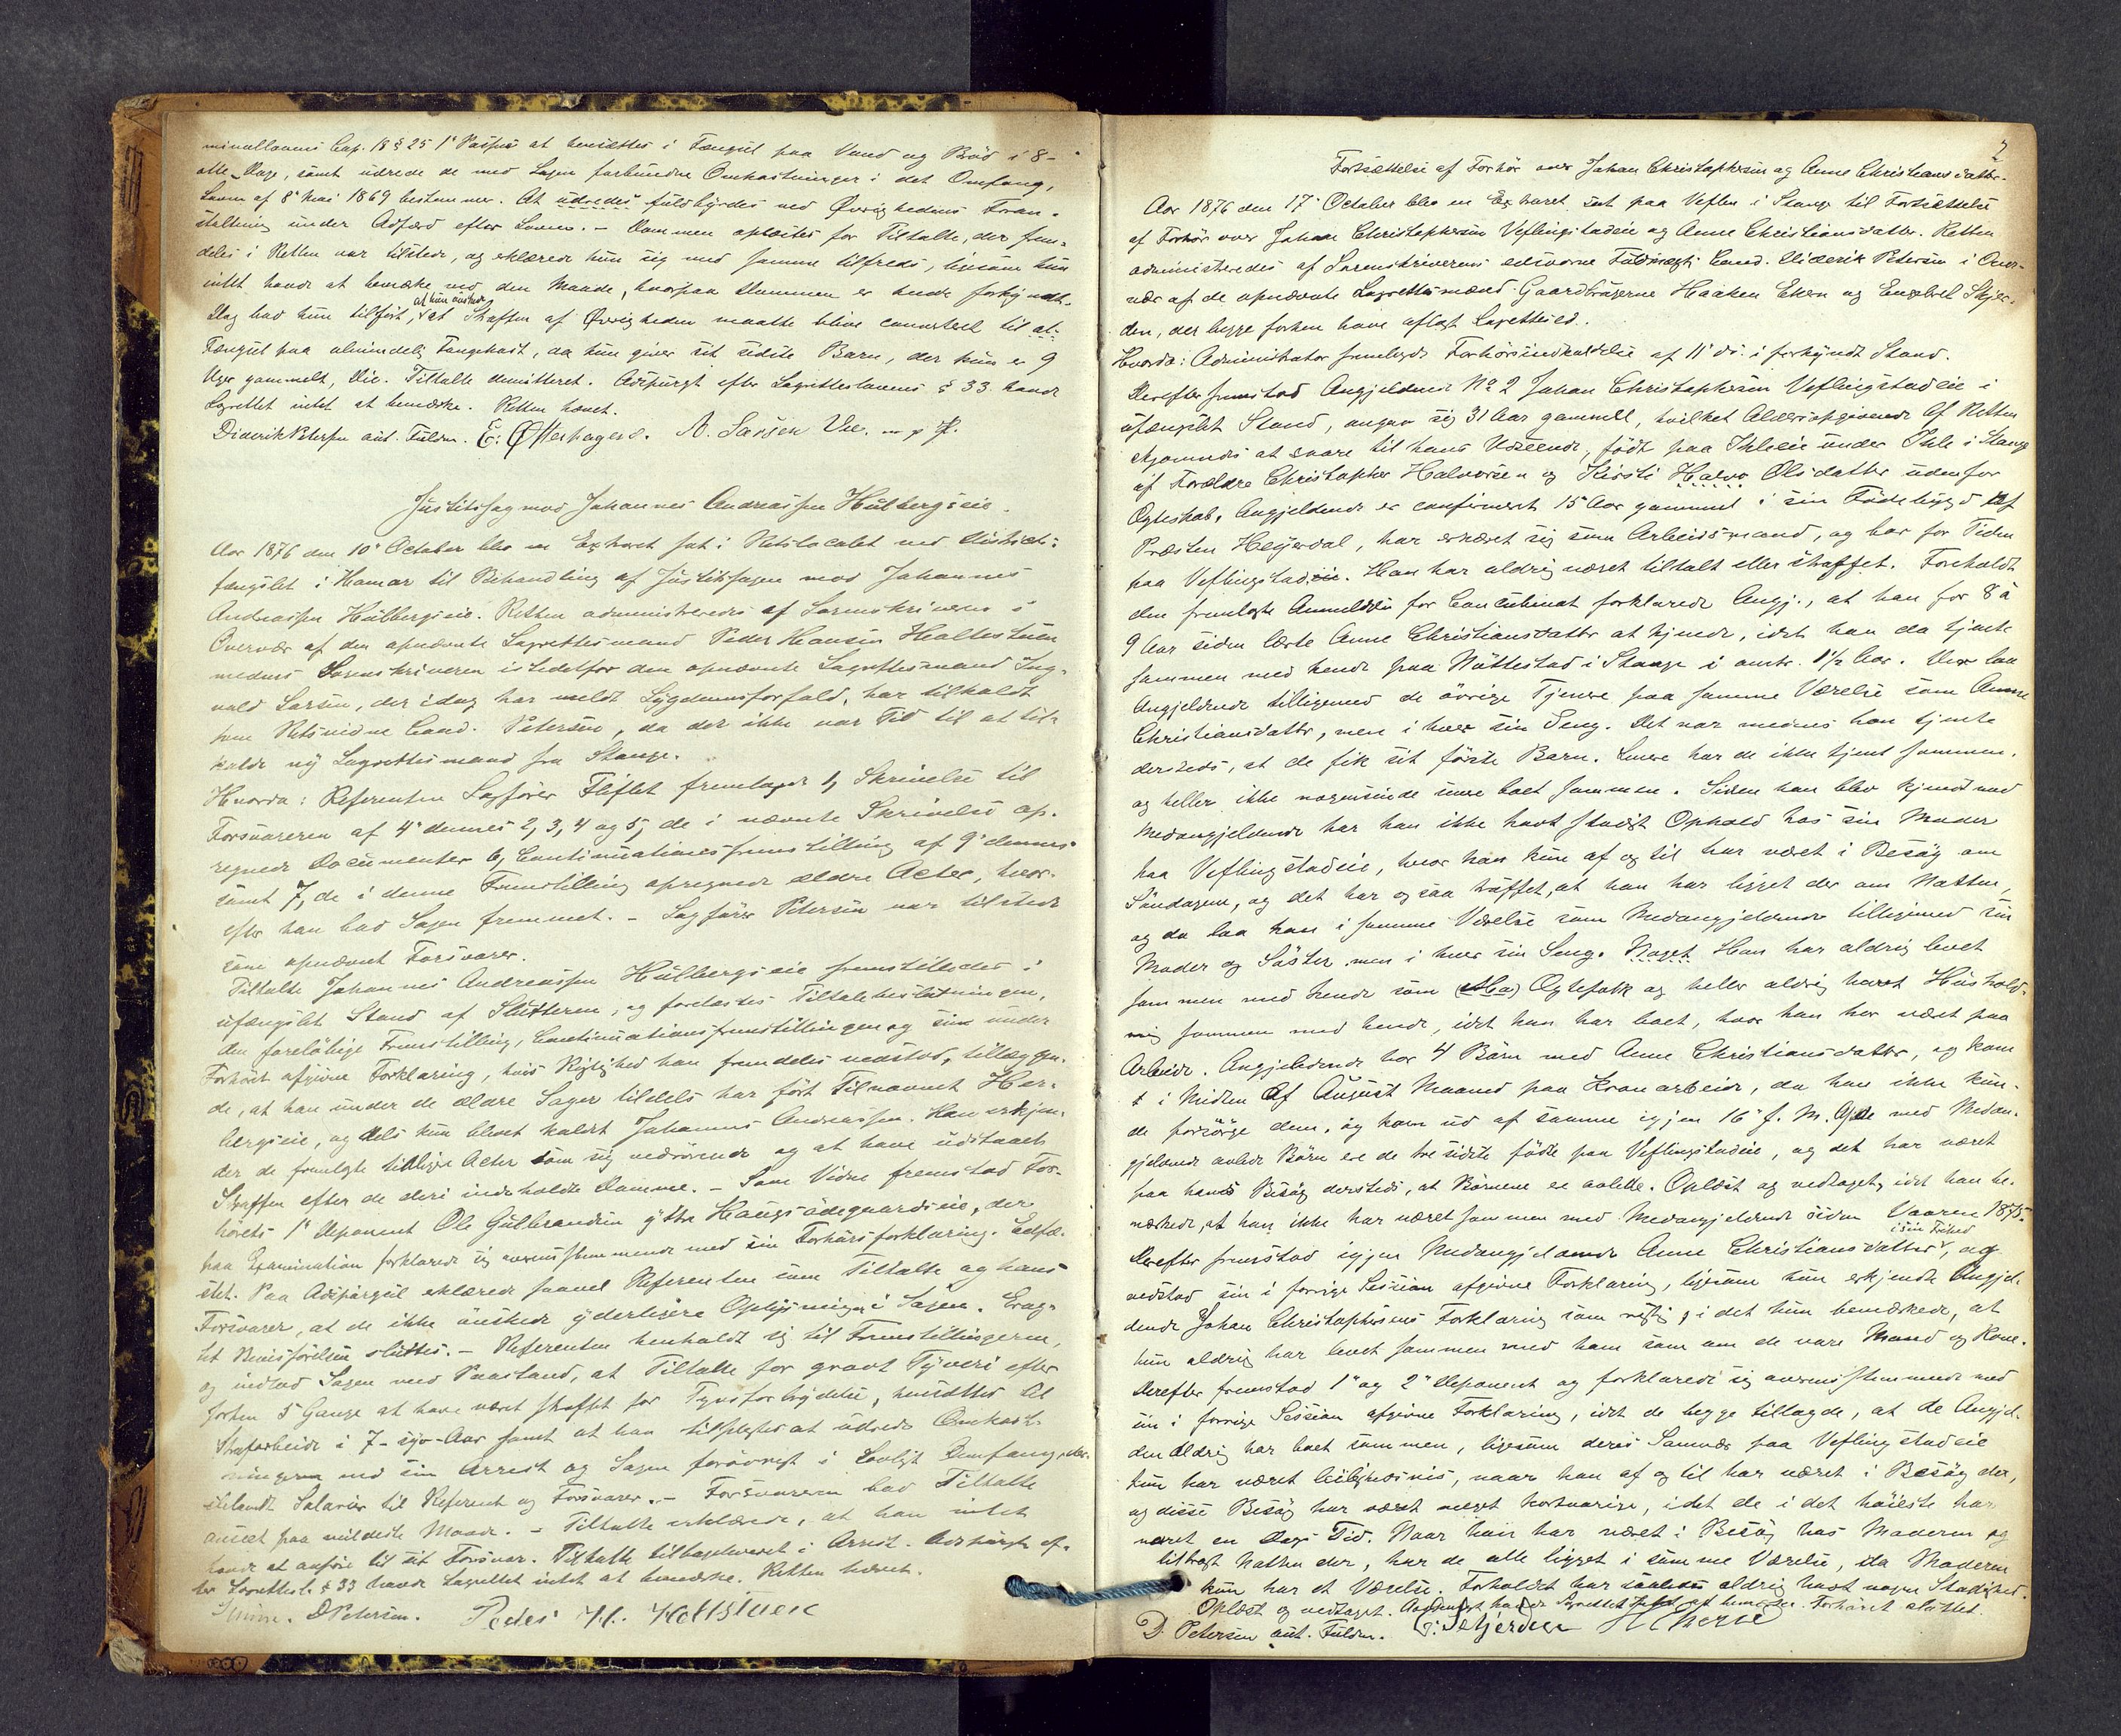 minallovens Cap. 18 § 25 1ste Passus at hensættes i Fængsel paa Vand og Brød i 8-
otte Dage, samt udrede de med Sagen forbundne Omkostninger i det Omfang,
Loven af 8de Mai 1869 bestemmer. At udredes fuldbyrdes ved Øvrighedens Foran-
staltning under Adfærd efter Loven. - Dommen oplæstes for Tiltalte, der frem-
deles i Retten var tilstede, og erklærede hun sig med samme tilfreds, ligesom hun
intet havde at bemærke mod den Maade, hvorpaa Dommen er hende forkyndt.
Dog bad hun tilført, at hun ønskede at Straffen af Øvrigheden maatte blive converteret til al-
Fængsel paa almindelig Fangekost, da hun giver sit sidste Barn, der kun er 9
Uger gammelt, Die. Tiltalte demitteret. Adspurgt efter Lagretteslovens § 33 havde
Lagrettet intet at bemærke. Retten hævet.
Diderik Petersen aut. Fuldm. E: Øfterhagen. A. Larsen
Justitssag mod Johannes Andreassen Hulbergseie.
Aar 1876 den 10de October blev en Extraret sat i Retslocalet ved Districts-
fængslet i Hamar til Behandling af Justitssagen mod Johannes
Andreassen Hulbergseie. Retten administreredes af Sorenskriveren i
Overvær af den opnævnte Lagrettesmand Peder Hansen Holtestuen
medens Sorenskriveren istedetfor den opnævnte Lagrettesmand Ing-
vald Larsen, der idag har meldt Sygdomsforfald, har tilkaldt
som Retsvidne Cand. Petersen, da der ikke var Tid til at til-
kalde ny Lagrettesmand fra Stange.
Hvorda: Referenten Sagfører Fliflet fremlagde 1, Skrivelse til
Forsvareren af 4de dennes 2, 3, 4 og 5, de i nævnte Skrivelse op-
regnede Documenter 6, Continuationsfremstilling af 9de dennes
samt 7, de i denne Fremstilling opregnede ældre Acter, hvor-
efter han bad Sagen fremmet. - Sagfører Petersen var tilstede
som opnævnt Forsvarer.
Tiltalte Johannes Andreassen Hulbergseie fremstilledes i
ufængslet Stand af Slutteren, og forelæstes Tiltalebeslutningen,
den foreløbige Fremstilling, Continuationsfremstillingen og sin under
Forhøret afgivne Forklaring, hvis Rigtighed han fremdeles vedstod, tillæggen-
de, at han under de ældre Sager tildels har ført Tilnavnet Her-
bergseie, og dels kun blevet kaldt Johannes Andreassen. Han erkjen-
der de fremlagte tidligere Acter som sig vedrørende og at have udstaaet
Straffen efter de deri indeholdte Domme. - Som Vidne fremstod For-
hørets 1ste Deponent Ole Gulbrandsen ytre Haugsødegaardseie, der
paa Examination forklarede sig overensstemmende med sin Forhørsforklaring. Edfæ-
stet. Paa Adspørgsel erklærede saavel Referenten som Tiltalte og hans
Forsvarer, at de ikke ønskede yderligere Oplysninger i Sagen. Erag-
tet Bevisførelsen sluttes. - Referenten henholdt sig til Fremstillingerne,
og indlod Sagen med Paastand, at Tiltalte for grovt Tyveri efter
forhen 5 Gange at have været straffet for Tyvsforbrydelse, hensættes til
Strafarbeide i 7-syv-Aar samt at han tilpligtes at udrede Omkost-
ningerne ved sin Arrest og Sagen forøvrigt i lovligt Omfang, der-
iblandt Salarier til Referent og Forsvarer. - Forsvareren bad Tiltalte
anseet paa mildeste Maade. - Tiltalte erklærede, at han intet
havde at anføre til sit Forsvar. Tiltalte tilbageleveret i Arrest. Adspurgt ef-
ter Lagrettesl. § 33 havde Lagrettet intet at bemærke. Retten hævet.
D Petersen. Peder H. Holtstuen
2
Fortsættelse af Forhør over Johan Christophersen og Anne Christiansdatter.
Aar 1876 den 17de October blev en Extraret sat paa Veflen i Stange til Fortsættelse
af Forhør over Johan Christophersen Veflingstadeie og Anne Christiansdatter. Retten
administreredes af Sorenskriverens edsvorne Fuldmægtig Cand. Diderik Petersen i Over-
vær af de opnævnte Lagrettesmænd Gaardbrugerne Haaken Ekern og Engebret Skjer-
den, der begge forhen have aflagt Lagretteed.
Hvorda: Administrator fremlagde Forhørsindkaldelse af 11te ds. i forkyndt Stand.
Derefter fremstod Angjeldende No 2 Johan Christophersen Veflingstadeie i
ufængslet Stand, angav sig 31 Aar gammel, hvilket Aldersopgivende af Retten
skjønnedes at svare til hans Udseende, født paa Ihleeie under Ihle i Stange
af Forældre Christopher Halvorsen og Kirsti Halvo Olsdatter udenfor
Ægteskab. Angjeldende er confirmeret 15 Aar gammel i sin Fødebygd af
Præsten Heyerdal, har ernæret sig som Arbeidsmand, og bor for Tiden
paa Veflingstadeie. Han har aldrig været tiltalt eller straffet. Foreholdt
den fremlagte Anmeldelse for Concubinat forklarede Angj., at han for 8 à
9 Aar siden lærte Anne Christiansdatter at kjende, idet han da tjente
sammen med hende paa Nøttestad i Stange i omtr. 1½ Aar. Der laa
Angjeldende tilligemed de øvrige Tjenere paa samme Værelse som Anne
Christiansdatter, men i hver sin Seng. Det var medens han tjente
dersteds, at de fik sit første Barn. Senere har de ikke tjent sammen,
og heller ikke nogensinde senere boet sammen. Siden han blev kjendt med
Medangjeldende har han ikke havt stadigt Ophold hos sin Moder
paa Veflingstadeie, hvor han kun af og til har været i Besøg om
Søndagen, og det har ogsaa truffet, at han har ligget der om Natten,
og da laa han i samme Værelse som Medangjeldende tilligemed sin
Moder og Søster men i hver sin Seng. Noget Han har aldrig levet
sammen med hende som Ægtefolk og heller aldrig havt Hushold-
ning sammen med hende, idet han har boet, hvor han har været paa
Arbeide. Angjeldende har 4 Børn med Anne Christiansdatter, og kom
i Midten af August Maaned paa Tvangsarbeide, da han ikke kun-
de forsørge dem, og kom ud af samme igjen 16de f. M. Af de med Medan-
gjeldende avlede Børn ere de tre sidste fødte paa Veflingstadeie, og det har været
paa hans Besøg dersteds, at Børnene er avlede. Oplæst og vedtaget, idet han be-
mærkede, at han ikke har været sammen med Medangjeldende siden Vaaren 1875.
Derefter fremstod igjen Medangjeldende Anne Christiansdatter i sin Frihed, og
vedstod sin i forrige Session afgivne Forklaring, ligesom hun erkjendte Angjel-
dende Johan Christophersens Forklaring som rigtig, i det hun bemærkede, at
hun aldrig har levet sammen med ham som om de vare Mand og Kone.
Derefter fremstod 1ste og 2den Deponent og forklarede sig overensstemmende med
sin i forrige Session afgivne Forklaring, idet de begge tillagde, at de Angjel-
dende aldrig har boet sammen, ligesom deres Samvær paa Veflingstadeie
kun har været leilighedsvis, naar han af og til har været i Besøg der,
og disse Besøg har været meget kortvarige, idet de i det høieste har
varet en Dags Tid. Naar han har været i Besøg hos Moderen og
tilbragt Natten der, har de alle ligget i samme Værelse, da Moderen
kun har et Værelse. Forholdet har saaledes aldrig havt nogen Stadighed.
Oplæst og vedtaget. Adspurgt havde Lagrettet intet at bemærke. Forhøret sluttet.
D. Petersen aut. Fuldm. E. Skjerden H Ekern